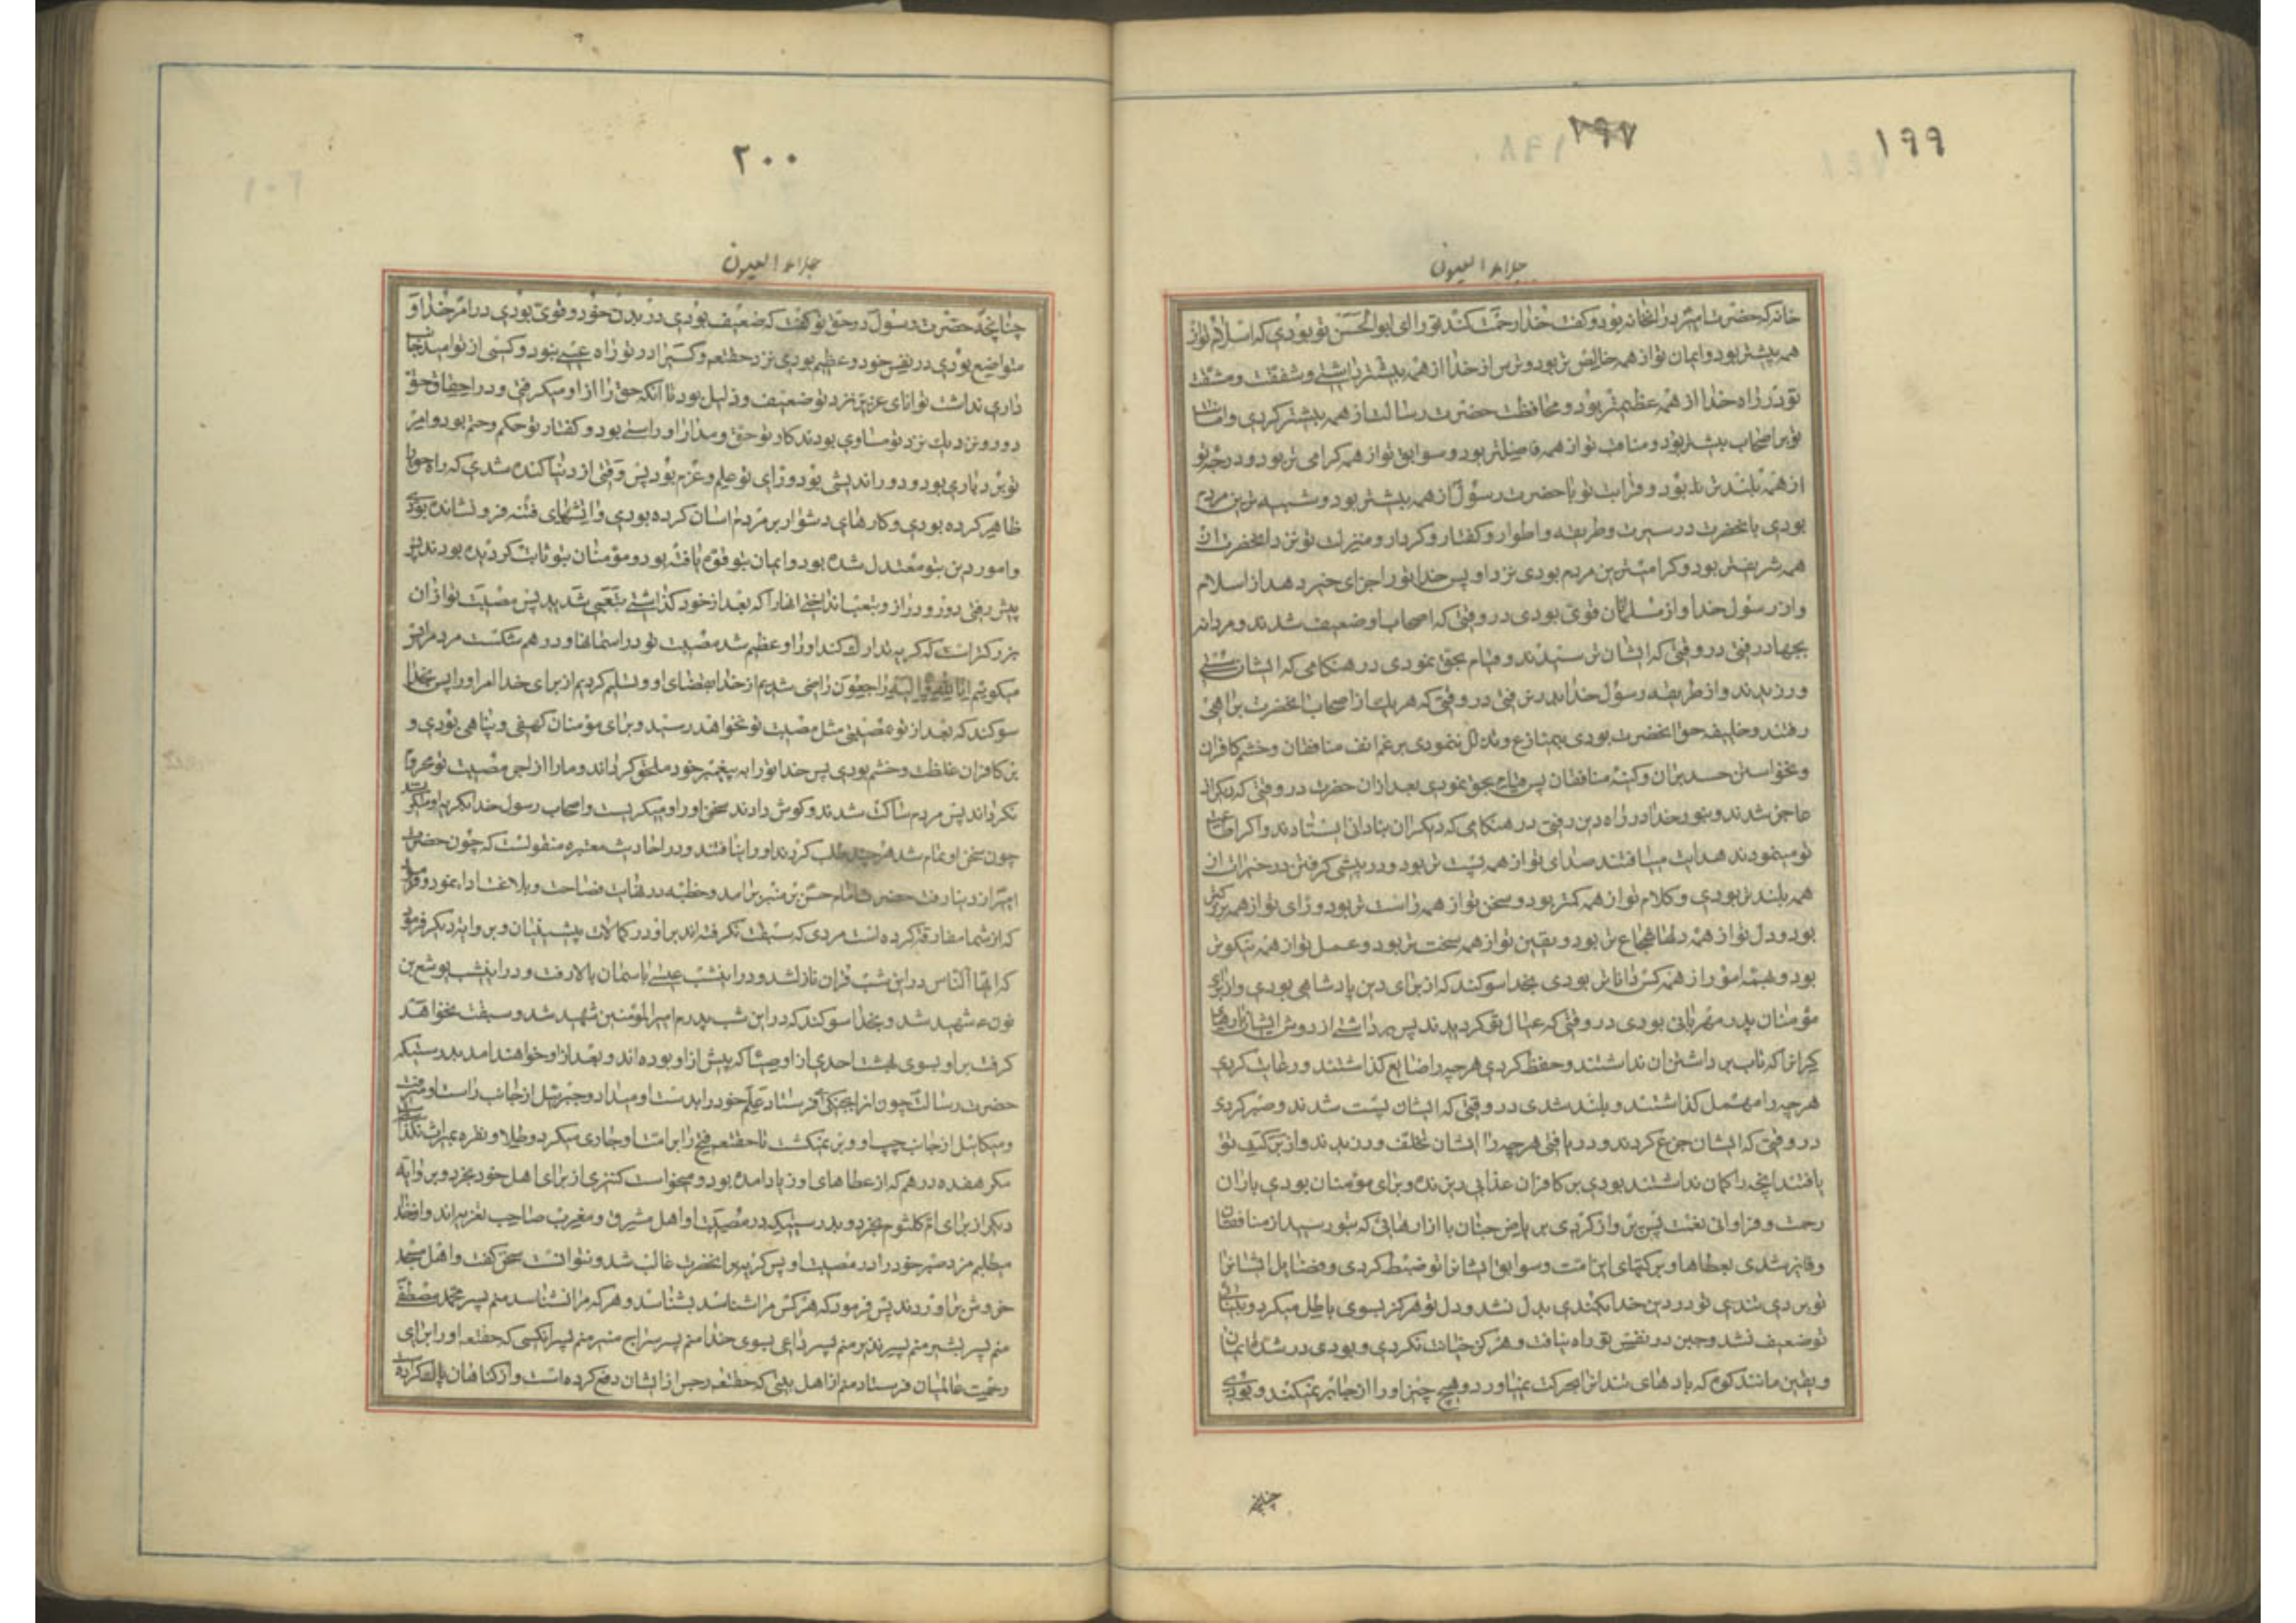 ۱۹۹
۱۹۷
جلاء العیون
خانه که حضرت امیر در انخانه بود و کفت خدا رحمت کند تو را ای ابوالحسن تو بودی که اسلام تو از
همه پیشتر بود و ایمان تو از همه خالص تر بود و ترس از خدا از همه بیشتر داشتی و شفقت و مشقت
تو در راه خدا از همه عظیمتر بود و محافظت حضرت رسالت از همه بیشتر کردی و امانت
تو بر اصحاب بیشتر بود و مناقب تو از همه فاضلتر بود و سوابق تو از همه کرامی تر بود و درجه تو
از همه بلند تر بود و قرابت تو با حضرت رسول از همه بیشتر بود و شبیه ترین مردم
بودی بانحضرت در سیرت و طریقه و اطوار و کفتار و کردار و منزلت تو نزد انحضرت از
همه شریفتر بود و کرامی ترین مردم بودی نزد او پس خدا تو را جزای خیر دهد از اسلام
و از رسول خدا و از مسلمانان قوی بودی در وقتی که اصحاب او ضعیف شدند و مردانه
بجهاد رفتی در وقتی که ایشان ترسیدند و قیام بحق نمودی در هنکامی که ایشان سستی
ورزیدند و از طریقه رسول خدا بدر نرفتی در وقتی که هر یک از اصحاب انحضرت براهی
رفتند و خلیفه حق انحضرت بودی بیمنازع و تذلل ننمودی برغم انف منافقان و خشم کافران
و نخواستن حسدبران و کینه منافقان پس قیام بحق نمودی بعد از ان حضرت در وقتی که دیکران
عاجز شدند و بنور خدا در راه دین رفتی در هنکامی که دیکران بنادانی ایستادند و اکر اطاعت
تو مینمودند هدایت مییافتند صدای تو از همه پست تر بود و در پیشی کرفتن در خیرات از
همه بلند تر بودی و کلام تو از همه کمتر بود و سخن تو از همه راست تر بود و رای تو از همه بزرکتر
بود و دل تو از همه دلها شجاع تر بود و یقین تو از همه سخت تر بود و عمل تو از همه نیکوتر
بود و بهمه امور از همه کس داناتر بودی بخدا سوکند که از برای دین پادشاهی بودی و از برای
مؤمنان پدر مهربانی بودی در وقتی که عیال تو کردیدند پس برداشتی از دوش ایشان بارهای
کرانرا که تاب برداشتن ان نداشتند و حفظ کردی هرچه را ضایع کذاشتند و رعایت کردی
هرچه را مهمل کذاشتند و بلند شدی در وقتی که ایشان پست شدند و صبر کردی
در وقتی که ایشان جزع کردند و دریافتی هرچه را ایشان تخلف ورزیدند و از برکت تو
یافتند انچه را کمان نداشتند بودی بر کافران عذابی ریزنده و برای مؤمنان بودی باران
رحمت و فراوانی نعمت پس پرواز کردی بریاض جنان با ازارهائی که بتو رسید از منافقان
و فایز شدی بعطاها و برکتهای این امت و سوابق ایشانرا تو ضبط کردی و فضایل ایشانرا
تو بردی تندی تو در دین خدا بکندی بدل نشد و دل تو هرکز بسوی باطل میل نکرد و بینائی
تو ضعیف نشد و جبن در نفس تو راه نیافت و هرکز خیانت نکردی و بودی در شدت ایمان
و یقین مانند کوه که بادهای تند انرا بحرکت نمیاورد و هیچ چیز او را از جا بر نمیکند و بودی
چنانچه
۲۰۰
جلاء العیون
چنانچه حضرت رسول در حق تو کفت که ضعیف بودی در بدن خود و قوی بودی در امر خدا و
متواضع بودی در نفس خود و عظیم بودی نزد حقتعه و کسیرا در تو راه عیبی نبود و کسی از تو امید جانب
داری نداشت توانای عزیز نزد تو ضعیف و ذلیل بود تا انکه حق را از او میکرفتی و در احقاق حق
دور و نزدیک نزد تو مساوی بودند کار تو حق و مدارا و راستی بود و کفتار تو حکم و حتم بود و امر
تو بردباری بود و دوراندیشی بود و رای تو علم و عزم بود پس وقتی از دنیا کنده شدی که راه حق را
ظاهر کرده بودی و کارهای دشوار بر مردم اسان کرده بودی و اتشهای فتنه فرو نشانده بودی
و امور دین بتو معتدل شده بود و ایمان بتو قوت یافته بود و مؤمنان بتو ثابت کردیده بودند پس
پیش رفتی دور و دراز و بتعب انداختی انها را که بعد از خود کذاشتی بتعبی شدید پس مصیبت تو از ان
بزرکتر است که کریه تدارک کند او را و عظیم شد مصیبت تو در اسمانها و درهم شکست مردم را پس
میکوئیم انا لله و انا الیه راجعون راضی شدیم از خدا بقضای او و تسلیم کردیم از برای خدا امر او را پس بخدا
سوکند که بعد از تو مصیبتی مثل مصیبت تو نخواهد رسید و برای مؤمنان کهفی و پناهی بودی و
بر کافران غلظت و خشم بودی پس خدا تو را به پیغمبر خود ملحق کرداند و ما را از اجر مصیبت تو محروم
نکرداند پس مردم ساکت شدند و کوش دادند سخن او را و میکریست و اصحاب رسول خدا بکریه او میکریستند
چون سخن او تمام شد هرچند طلب کردند او را نیافتند و در احادیث معتبره منقولست که چون حضرت
امیر از دنیا رفت حضرت امام حسن بر منبر بر امد و خطبه در نهایت فصاحت و بلاغت ادا نمود و فرمود
که از شما مفارقت کرده است مردی که سبقت نکرفته اند بر او در کمالات پیشینیان و بروایت دیکر فرمود
که ایها الناس در این شب قران نازل شد و در اینشب عیسی باسمان بالا رفت و در اینشب یوشع بن
نون ع شهید شد و بخدا سوکند که در این شب پدرم امیر المؤمنین شهید شد و سبقت نخواهد
کرفت بر او بسوی بهشت احدی از اوصیا که پیش از او بوده اند و بعد از او خواهند امد بدرستیکه
حضرت رسالت چون او را بجنکی میفرستاد علم خود را بدست او میداد و جبرئیل از جانب راست او میرفت
و میکائیل از جانب چپ او و بر نمیکشت تا حقتعه فتح را بر دست او جاری میکرد و طلا و نقره بمیراث نکذاشت
مکر هفده درهم که از عطاهای او زیاد امده بود و میخواست کنیزی از برای اهل خود بخرد و بروایت
دیکر از برای ام کلثوم بخرد و بدرستیکه در مصیبت او اهل مشرق و مغرب صاحب تعزیه اند و از خدا
میطلبم مزد صبر خود را در مصیبت او پس کریه بر انحضرت غالب شد و نتوانست سخن کفت و اهل مسجد
خروش براوردند پس فرمود که هر کس مرا شناسد بشناسد و هر که مرا نشناسد منم پسر محمد مصطفی
منم پسر بشیر منم پسر نذیر منم پسر داعی بسوی خدا منم پسر سراج منیر منم پسر انکسی که حقتعه او را برای
رحمت عالمیان فرستاد منم از اهل بیتی که حقتعه رجس را از ایشان دفع کرده است و از کناهان پاک کرده